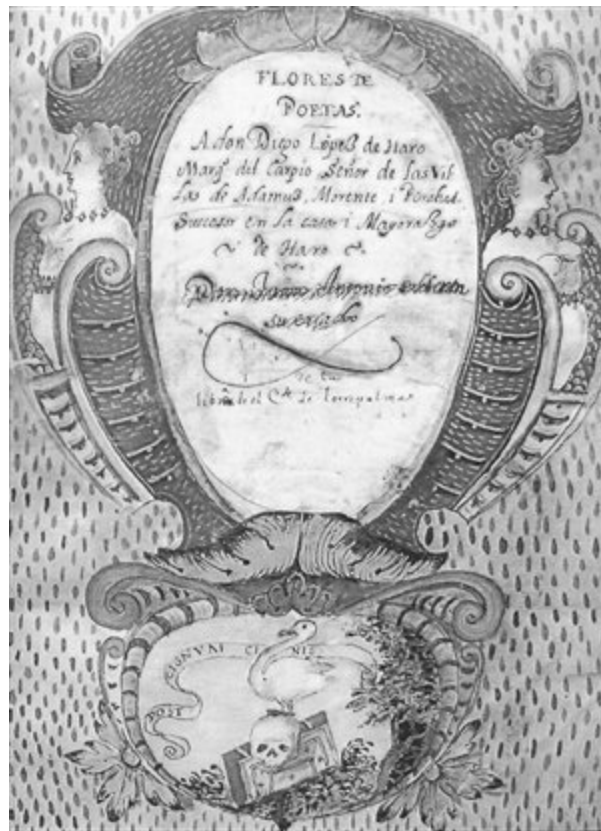 FLORES DE
POETAS.
A don Diego Lopeß de Haro
Marq̃ del Carpio Señor de las Vil
las de Adamuß, Morente, i
Sucesor en la casa i Mayoraßgo
de Haro
Don Juan Antonio
su criado
de la
del C.de de Torrepalma
POST
CI NIS